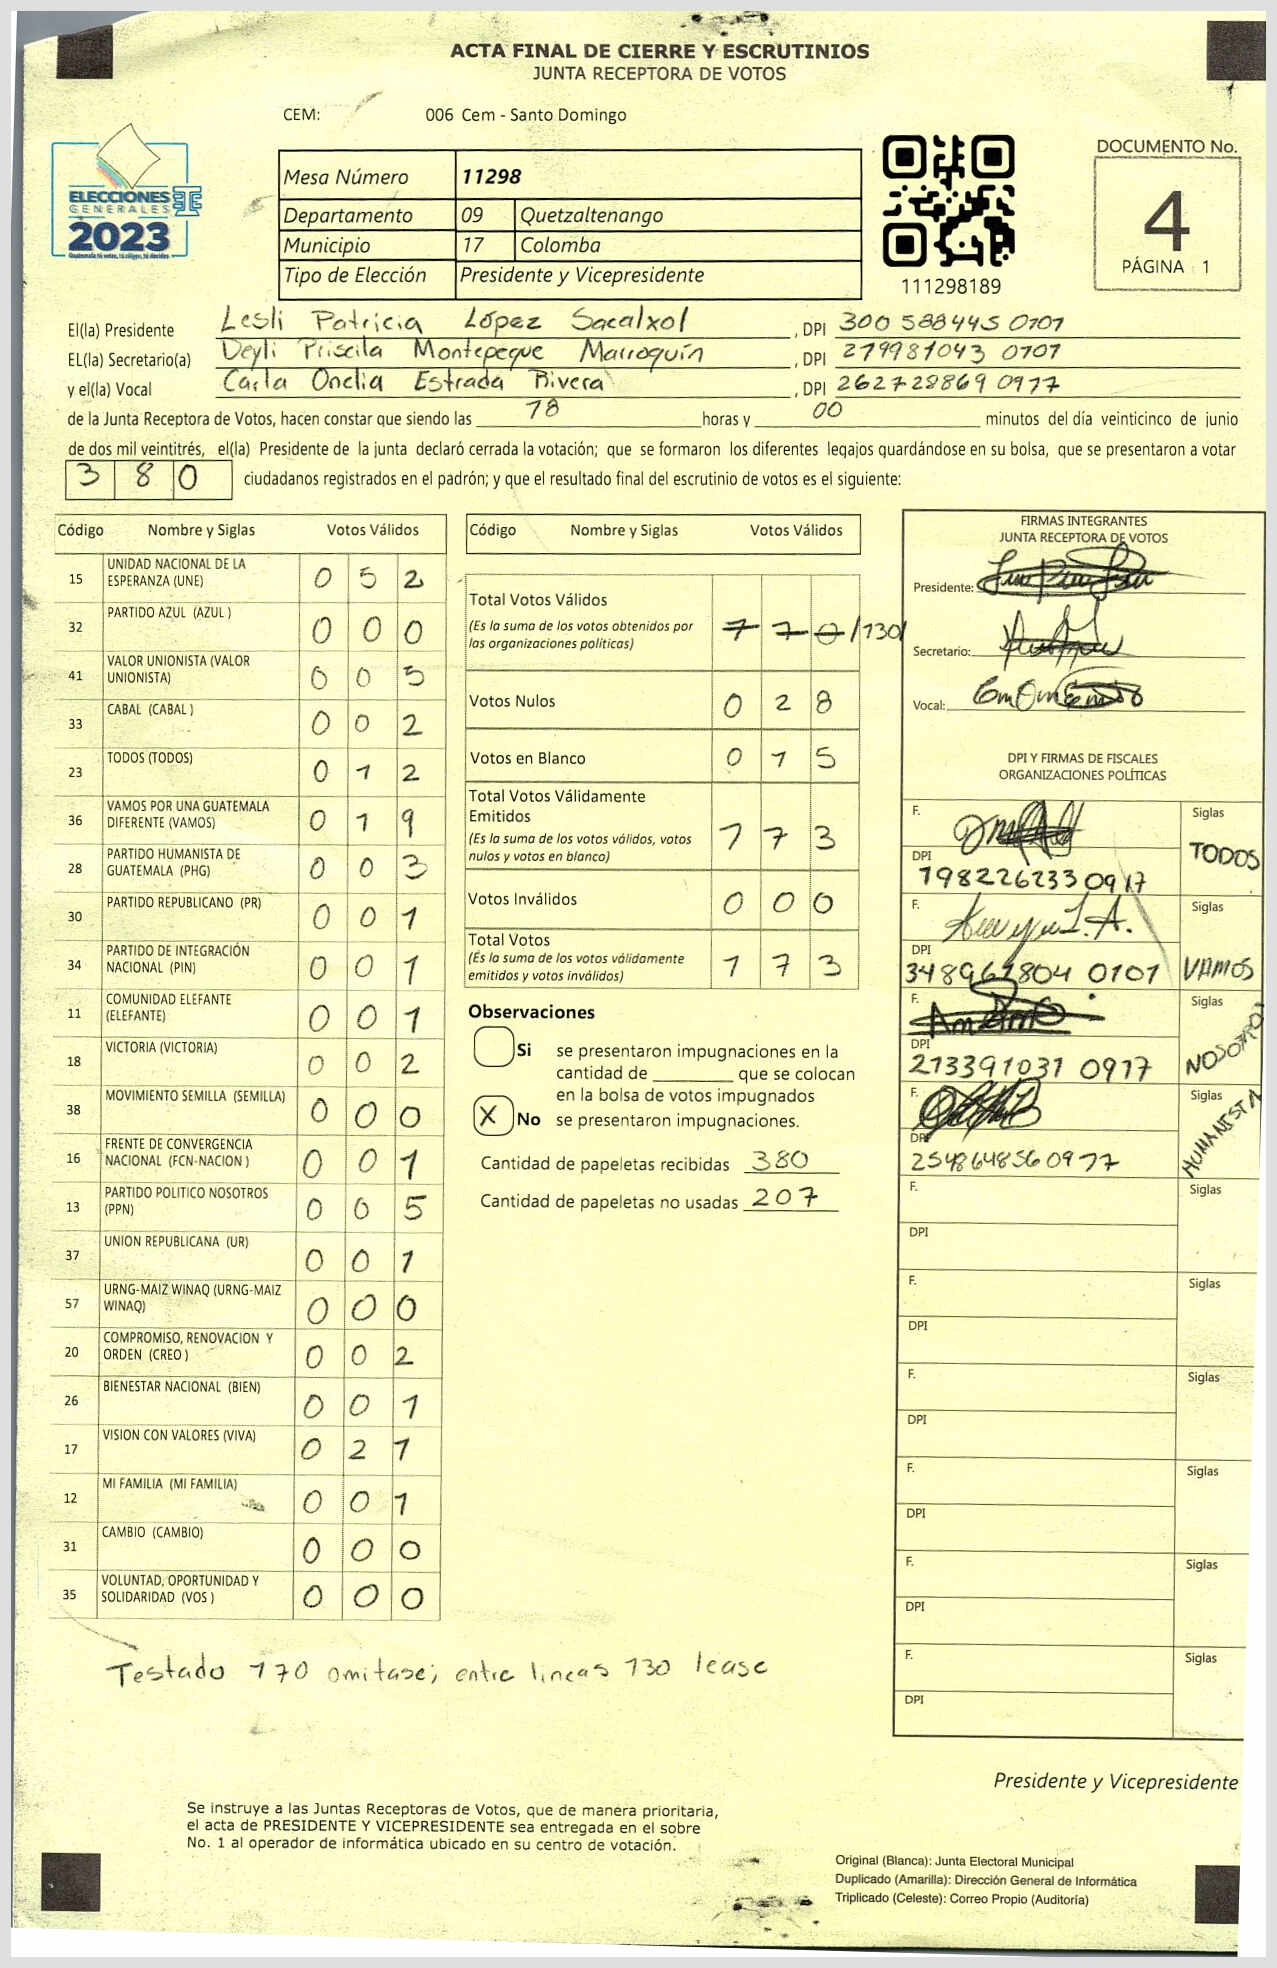 ACTA FINAL DE CIERRE Y ESCRUTINIOS
JUNTA RECEPTORA DE VOTOS
CEM: 006 Cem - Santo Domingo
ELECCIONES
GENERALES
2023
Guatemala tú votas, tú eliges, tú decides
Mesa Número 11298
Departamento 09 Quetzaltenango
Municipio 17 Colomba
Tipo de Elección Presidente y Vicepresidente
111298189
DOCUMENTO No.
4
PÁGINA 1
El(la) Presidente Lesli Patricia López Sacalxol, DPI 300 588445 0101
EL(la) Secretario(a) Deyli Priscila Montepeque Marroquín, DPI 279981043 0101
y el(la) Vocal Carla Onelia Estrada Rivera, DPI 262728869 0917
de la Junta Receptora de Votos, hacen constar que siendo las 18 horas y 00 minutos del día veinticinco de junio
de dos mil veintitrés, el(la) Presidente de la junta declaró cerrada la votación; que se formaron los diferentes legajos guardándose en su bolsa, que se presentaron a votar
3 8 0 ciudadanos registrados en el padrón; y que el resultado final del escrutinio de votos es el siguiente:
Código Nombre y Siglas Votos Válidos
15 UNIDAD NACIONAL DE LA ESPERANZA (UNE) 0 5 2
32 PARTIDO AZUL (AZUL ) 0 0 0
41 VALOR UNIONISTA (VALOR UNIONISTA) 0 0 5
33 CABAL (CABAL ) 0 0 2
23 TODOS (TODOS) 0 1 2
36 VAMOS POR UNA GUATEMALA DIFERENTE (VAMOS) 0 1 9
28 PARTIDO HUMANISTA DE GUATEMALA (PHG) 0 0 3
30 PARTIDO REPUBLICANO (PR) 0 0 1
34 PARTIDO DE INTEGRACIÓN NACIONAL (PIN) 0 0 1
11 COMUNIDAD ELEFANTE (ELEFANTE) 0 0 1
18 VICTORIA (VICTORIA) 0 0 2
38 MOVIMIENTO SEMILLA (SEMILLA) 0 0 0
16 FRENTE DE CONVERGENCIA NACIONAL (FCN-NACION ) 0 0 1
13 PARTIDO POLITICO NOSOTROS (PPN) 0 0 5
37 UNION REPUBLICANA (UR) 0 0 1
57 URNG-MAIZ WINAQ (URNG-MAIZ WINAQ) 0 0 0
20 COMPROMISO, RENOVACION Y ORDEN (CREO ) 0 0 2
26 BIENESTAR NACIONAL (BIEN) 0 0 1
17 VISION CON VALORES (VIVA) 0 2 1
12 MI FAMILIA (MI FAMILIA) 0 0 1
31 CAMBIO (CAMBIO) 0 0 0
35 VOLUNTAD, OPORTUNIDAD Y SOLIDARIDAD (VOS ) 0 0 0
Código Nombre y Siglas Votos Válidos
Total Votos Válidos
(Es la suma de los votos obtenidos por
las organizaciones políticas)
1 7 0 /130/
Votos Nulos 0 2 8
Votos en Blanco 0 1 5
Total Votos Válidamente
Emitidos
(Es la suma de los votos válidos, votos
nulos y votos en blanco)
1 7 3
Votos Inválidos 0 0 0
Total Votos
(Es la suma de los votos válidamente
emitidos y votos inválidos)
1 7 3
Observaciones
Si se presentaron impugnaciones en la
cantidad de ________ que se colocan
en la bolsa de votos impugnados
X No se presentaron impugnaciones.
Cantidad de papeletas recibidas 380
Cantidad de papeletas no usadas 207
FIRMAS INTEGRANTES
JUNTA RECEPTORA DE VOTOS
Presidente:
Secretario:
Vocal:
DPI Y FIRMAS DE FISCALES
ORGANIZACIONES POLÍTICAS
F. Siglas
DPI TODOS
198226233 0917
F. Siglas
DPI
348961804 0101 VAMOS
F. Siglas
DPI
213391031 0917 NOSOTROS
F. Siglas
DPI
254864856 0917 HUMANISTA
F. Siglas
DPI
F. Siglas
DPI
F. Siglas
DPI
F. Siglas
DPI
F. Siglas
DPI
F. Siglas
DPI
Testado 170 omitase; entre lineas 130 lease
Presidente y Vicepresidente
Se instruye a las Juntas Receptoras de Votos, que de manera prioritaria,
el acta de PRESIDENTE Y VICEPRESIDENTE sea entregada en el sobre
No. 1 al operador de informática ubicado en su centro de votación.
Original (Blanca): Junta Electoral Municipal
Duplicado (Amarilla): Dirección General de Informática
Triplicado (Celeste): Correo Propio (Auditoría)